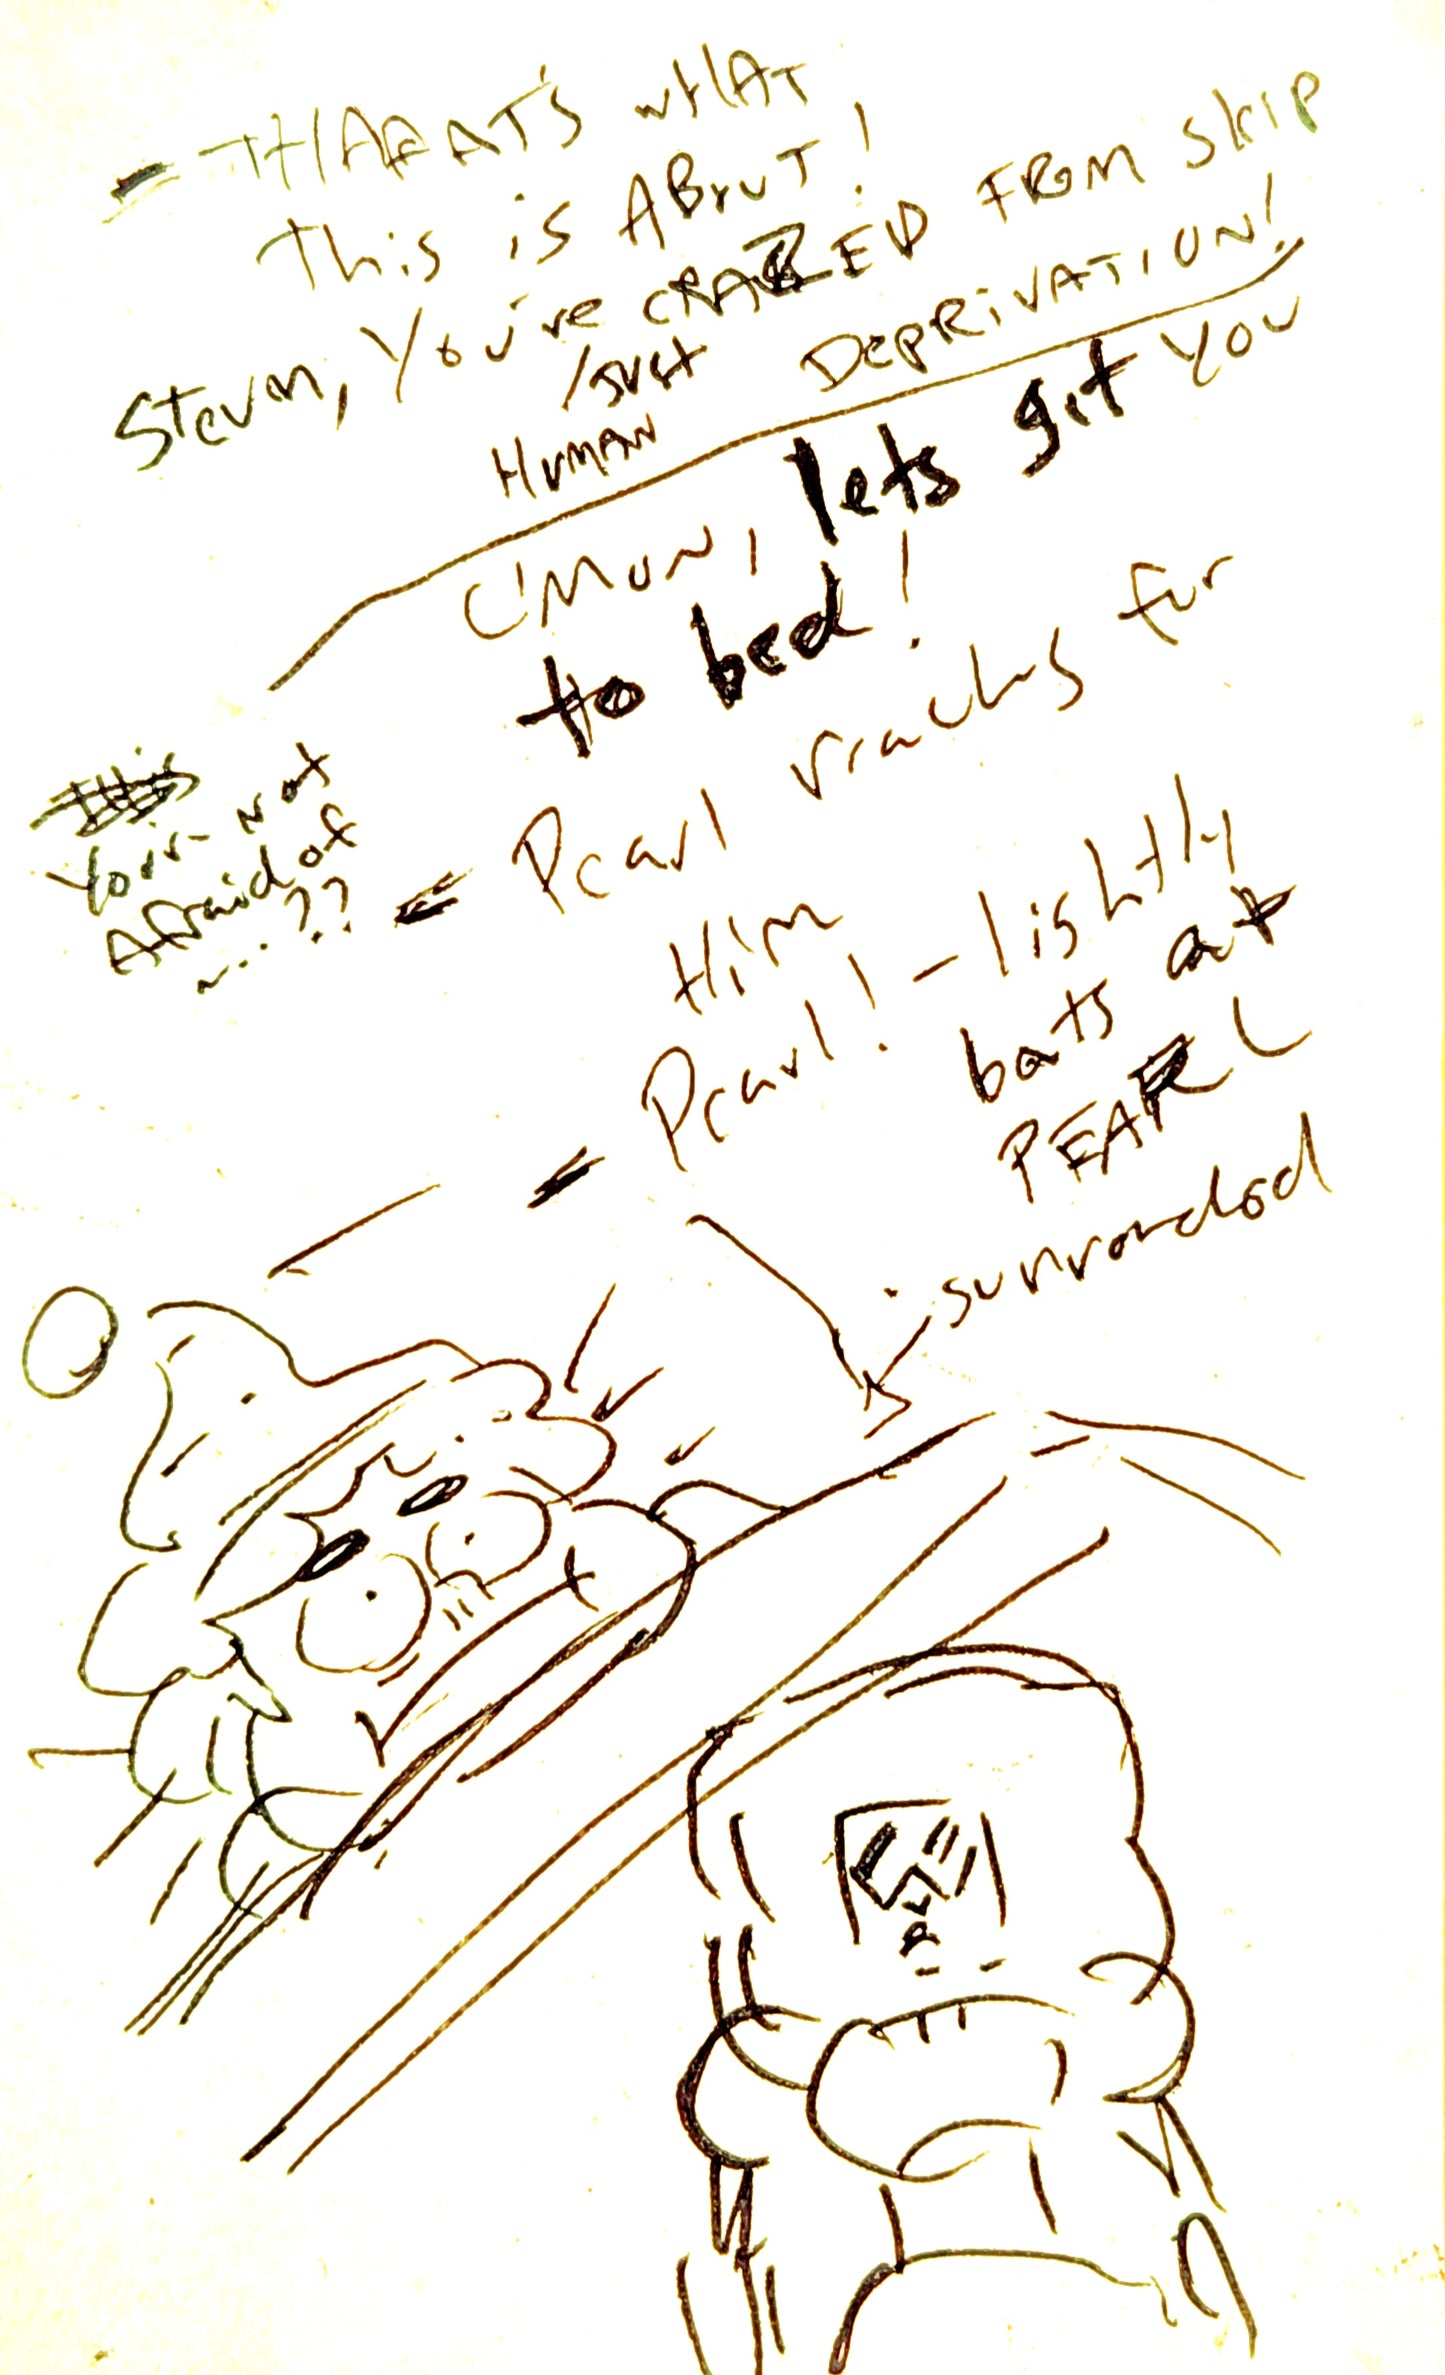 - THAAATS WHAT
This is ABOUT!
Steven, You're CRAZED FROM SKIP
/JUST
HUMAN
DEPRIVATION!
C'MON, lets get you
to bed!
Your not
Afraid of
...??
- Pearl reaches for
Him
- Pearl! - lightly
bats at
PEARL
surrounded